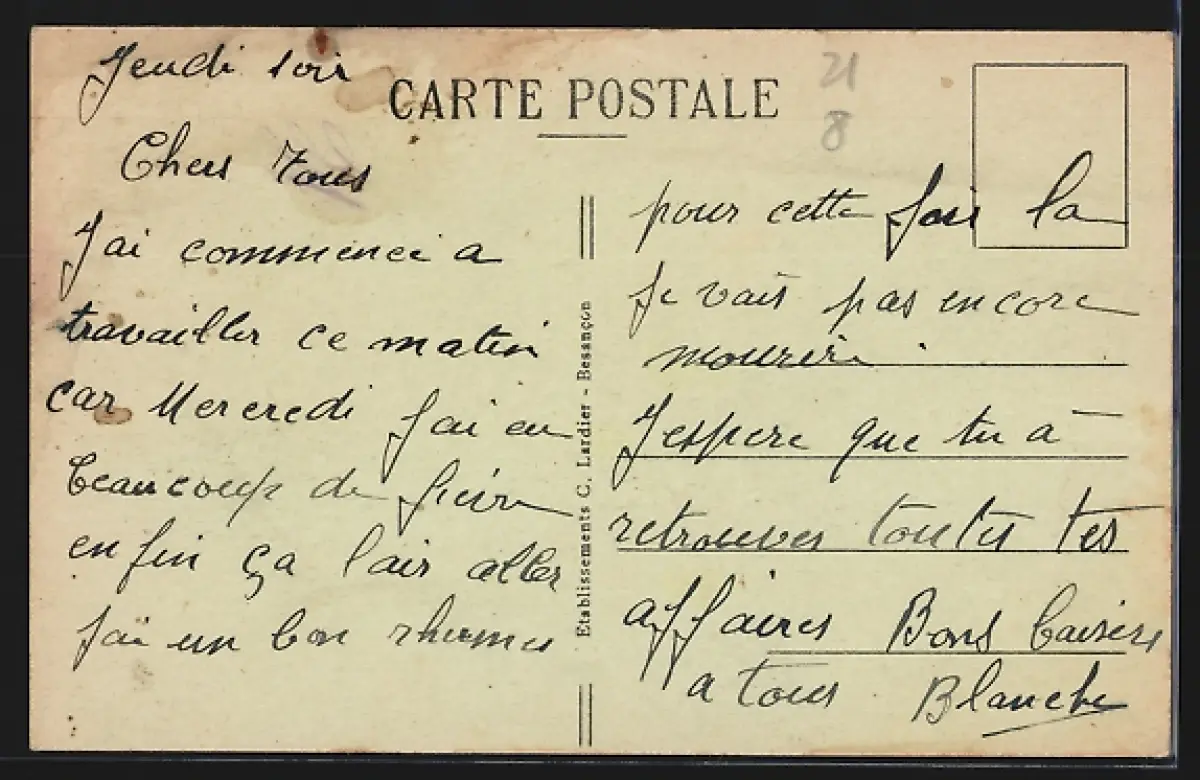 Jeudi soir
CARTE POSTALE
21
8
Chers Tous
J'ai commencé a
travailler ce matin
car Mercredi j'ai eu
beaucoup de fièvre
enfin ça l'air aller
j'ai un bon rhumes
Etablissements C. Lardier - Besançon
pour cette fois la
je vais pas encore
mourrir.
J'espere que tu à
retrouver toutes tes
affaires Bons baisers
a tous Blanche